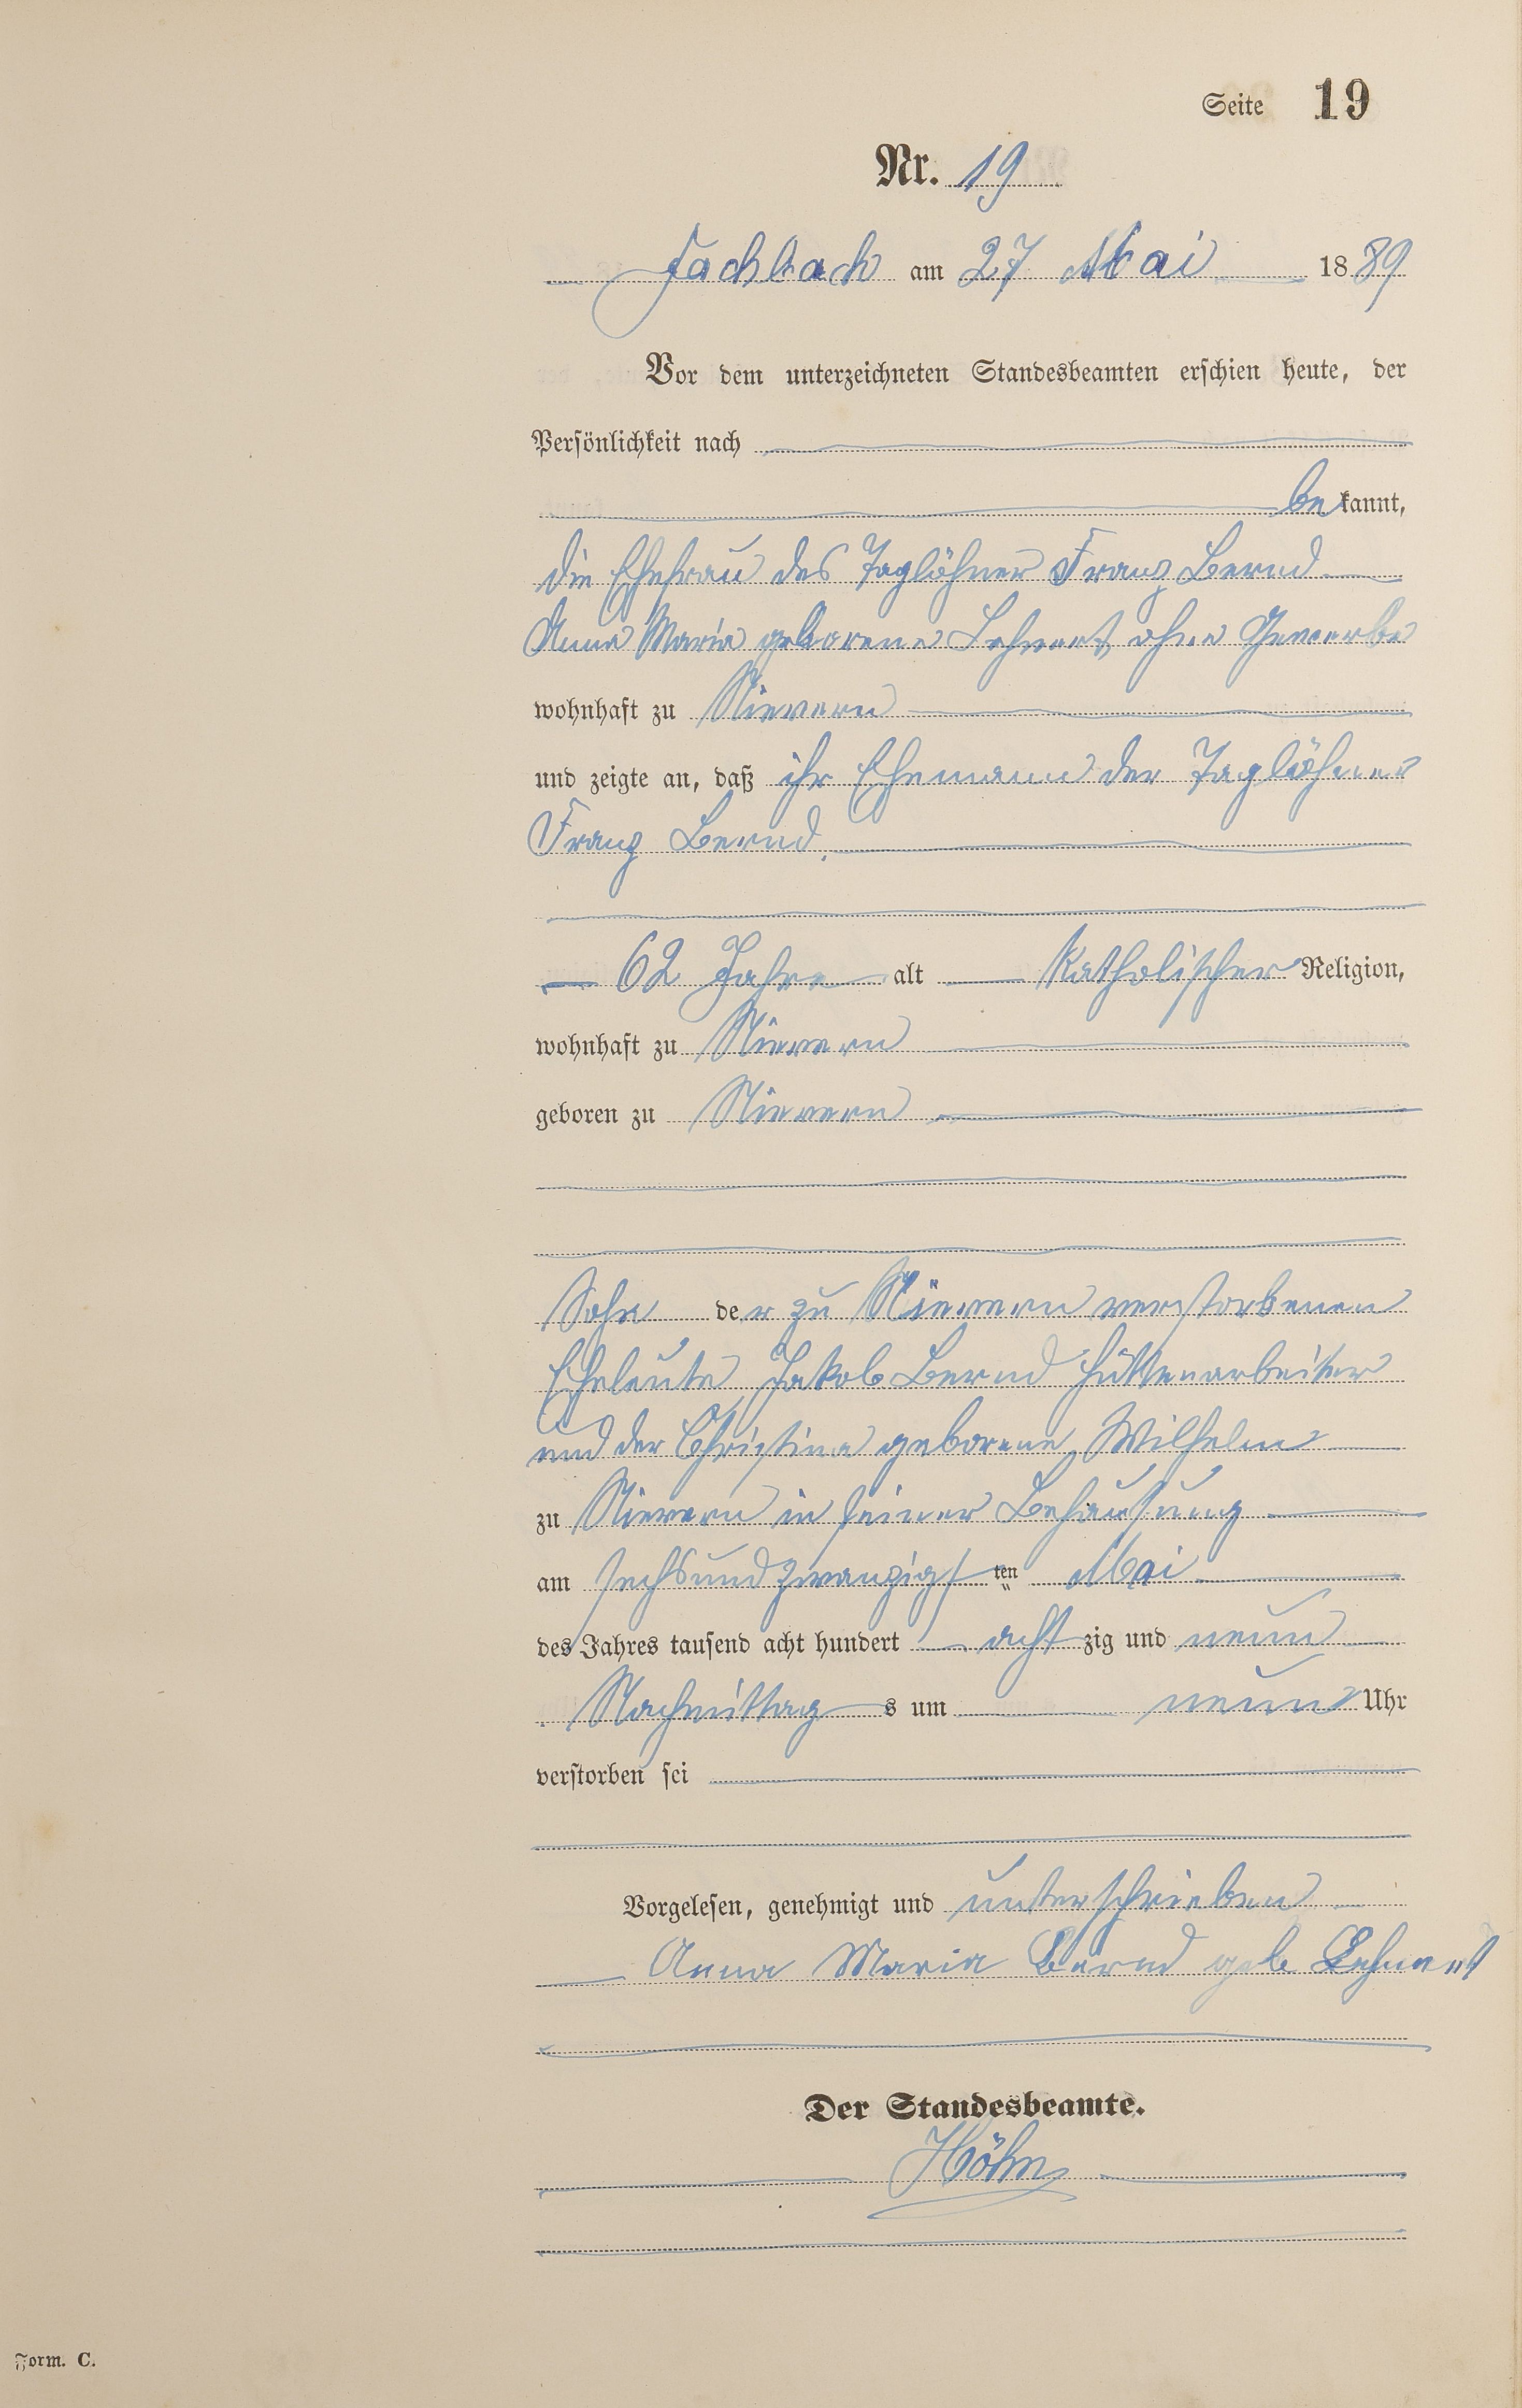 Seite 19
Nr. 19
Fachbach am 27 Mai 1889
Vor dem unterzeichneten Standesbeamten erschien heute, der
Persönlichkeit nach
bekannt,
die Ehefrau des Taglöhner Franz Bernd
Anna Maria geborene Lehnert, ohne Gewerbe
wohnhaft zu Nievern
und zeigte an, daß ihr Ehemann der Taglöhner
Franz Bernd,
62 Jahre alt Katholischer Religion,
wohnhaft zu Nievern
geboren zu Nievern
Sohn der zu Nievern verstorbenen
Eheleute, Jakob Bernd Hüttenarbeiter
und der Christina geborene, Wilhelm
zu Nievern in seiner Behausung
am sechsundzwanzigsten Mai
des Jahres tausend acht hundert achtzig und neun
Nachmittags um neun Uhr
verstorben sei
Vorgelesen, genehmigt und unterschrieben
Anna Maria Bernd geb Lehnert
Der Standesbeamte.
Höhn
Form. C.